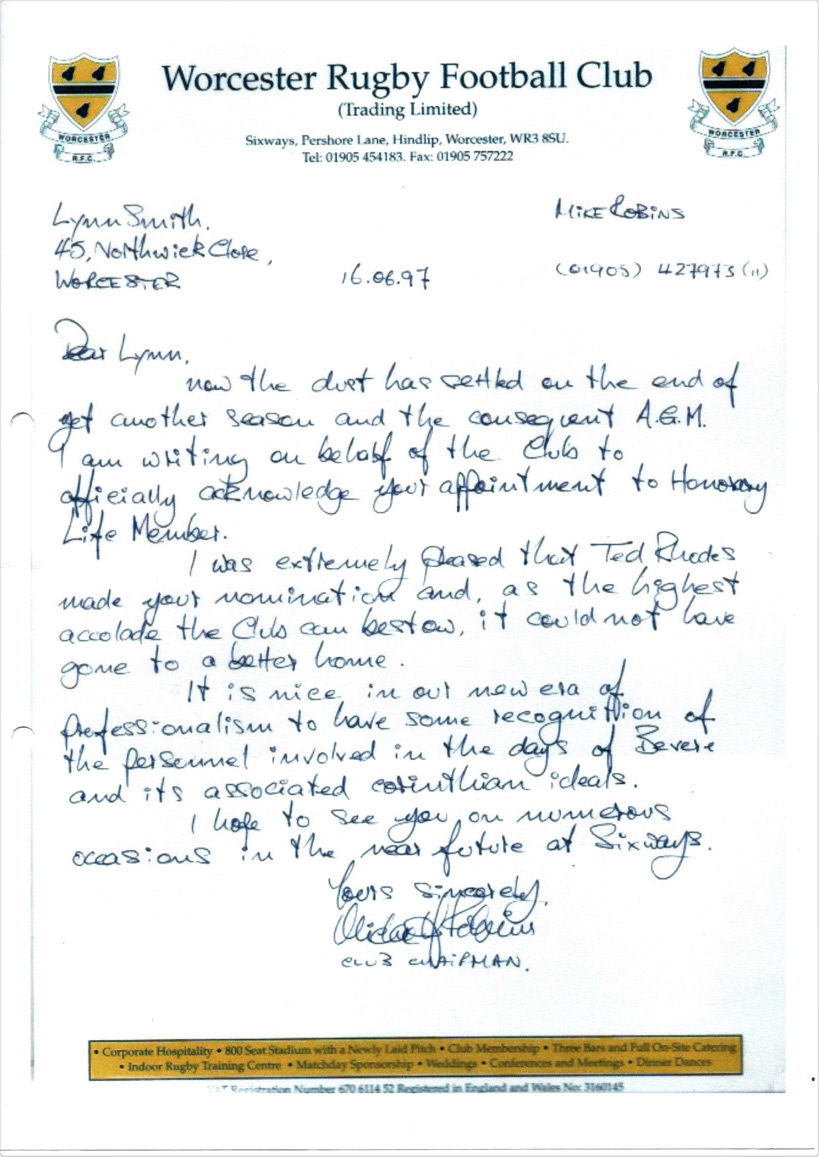 Worcester Rugby Football Club
(Trading Limited)
Sixways, Pershore Lane, Hindlip, Worcester, WR3 8SU.
Tel: 01905 454183. Fax: 01905 757222
WORCESTER
R.F.C
WORCESTER
R.F.C
Lynn Smith,
45, Northwick Close,
WORCESTER
16.06.97
MIKE ROBINS
(01905) 427973 (H)
Dear Lynn,
now the dust has settled on the end of
yet another season and the consequent A.G.M.
I am writing on behalf of the Club to
officially acknowledge your appointment to Honorary
Life Member.
I was extremely pleased that Ted Rhodes
made your nomination and, as the highest
accolade the Club can bestow, it could not have
gone to a better home.
It is nice in our new era of
professionalism to have some recognition of
the personnel involved in the days of Bevere
and its associated corinthian ideals.
I hope to see you on numerous
occasions in the near future at Sixways.
Yours sincerely,
CLUB CHAIRMAN.
• Corporate Hospitality • 800 Seat Stadium with a Newly Laid Pitch • Club Membership • Three Bars and Full On-Site Catering
• Indoor Rugby Training Centre • Matchday Sponsorship • Weddings • Conferences and Meetings • Dinner Dances
VAT Registration Number 670 6114 52 Registered in England and Wales No: 3160145